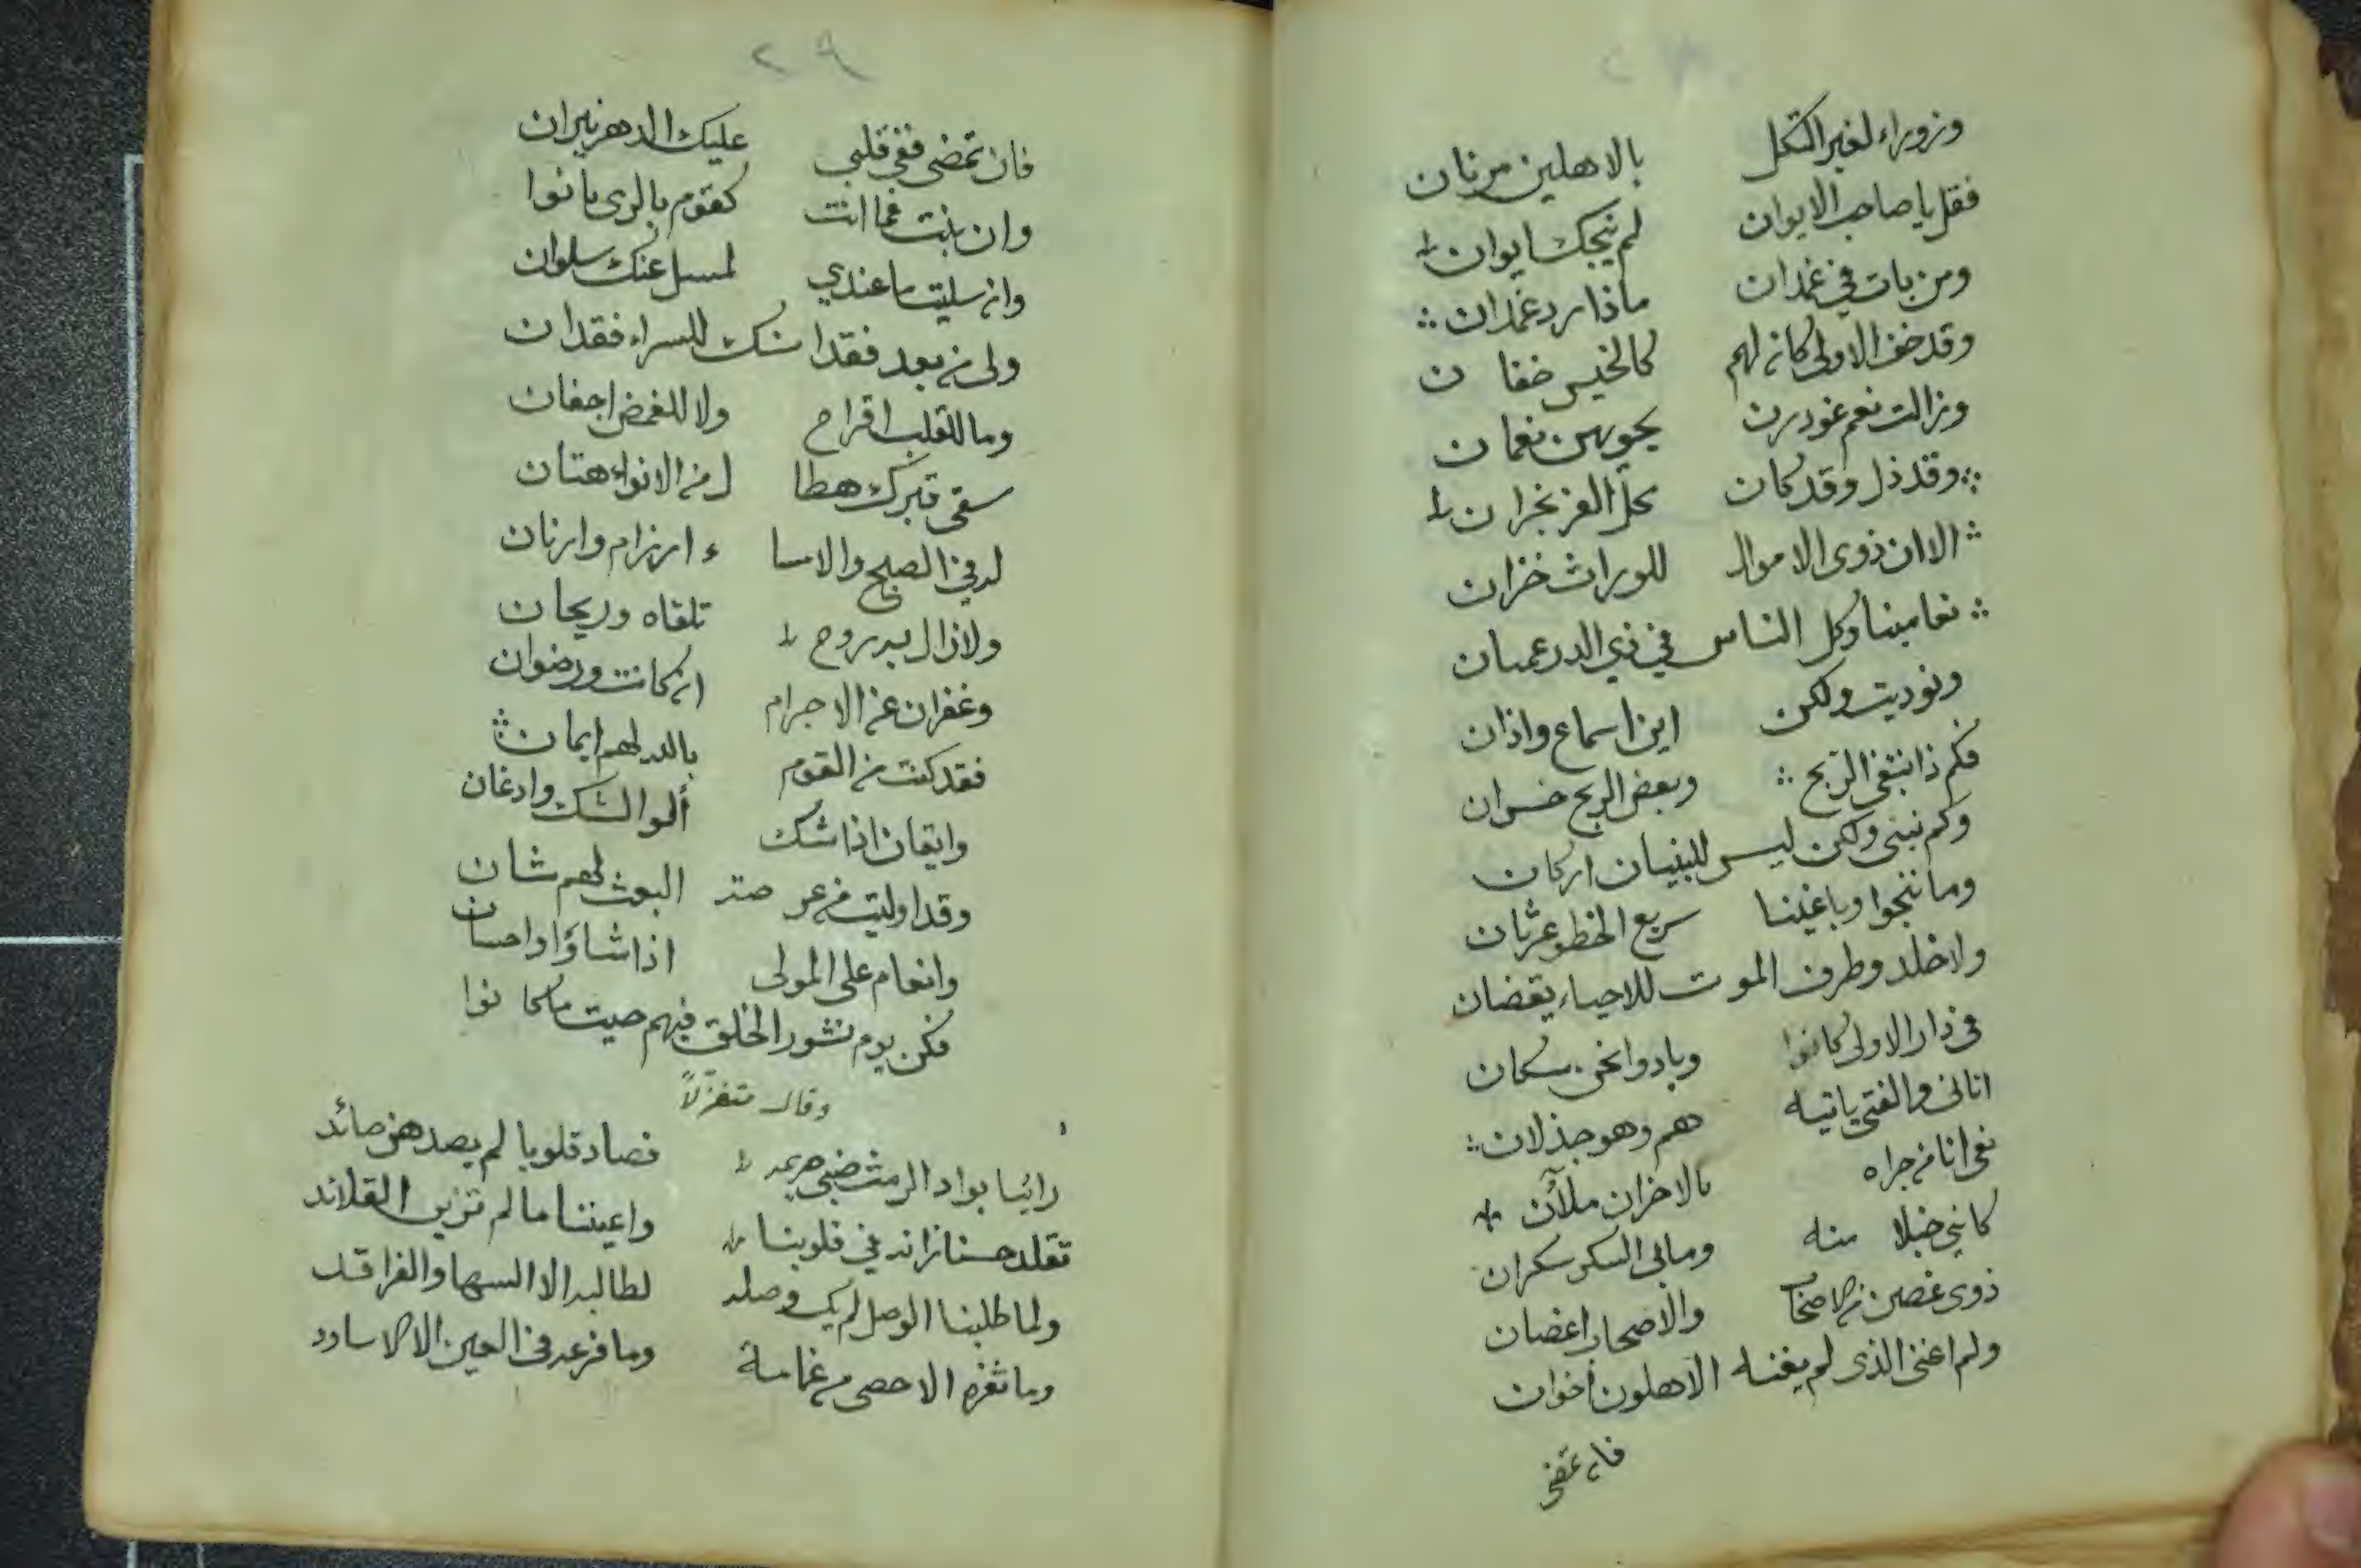 وزوراء لغير الثكل بالاهلين مرنان
فقل يا صاحب الايوان لم ينجك ايوان
ومن بات في غمدان ماذا رد غمدان
وقد خف الاولى كان لهم كالخيس خفان
وزالت نعم غودرن يحويهن نعمان
وقد ذل وقد كان محل العز نجران
الا ان ذوى الاموال للوراث خزان
تعامينا وكل الناس في ذي الدر عميان
ونوديت ولكن اين اسماع واذان
فكم ذا نبتغي الربح وبعض الربح خسران
وكم نبنى ولكن ليس للبنيان اركان
وما ننجوا وباغينا سريع الخطو عثران
ولا خلد وطرف الموت للاحياء يقضان
في دار الاولى كانوا وبادوا نحن سكان
اتانى والفتى ياتيه هم وهو جذلان
نعى انا من جراه بالاحزان ملآن
كانني خبلا منه ومابى السكر سكران
ذوى غصن والاصحاب اغصان
ولم اغنى الذى لم يغنه الاهلون اخوان
فان تمضى
٢٩
فان تمضى ففى قلبي عليك الدهر نيران
وان بنت فما انت كقوم بالردى بانوا
وان سليت ما عندي لمسل عنك سلوان
ولى من بعد فقدانك للسراء فقدان
وما للقلب افراح ولا للغمض اجفان
سقى قبرك هطا ل من الانواء هتان
له في الصبح والامسا ء ارزام وارنان
ولازال به روح تلقاه وريحان
وغفران عن الاجرام ان كانت ورضوان
فقد كنت من القوم بالله لهم ايمان
وايقان اذا شك ألوا الشك وادغان
وقد اوليت من عرصة البعث لهم شان
وانعام على المولى اذا شاؤا واحسان
فكن يوم نشور الخلق فيهم حيت ما كانوا
وقال متغزلاً
رائيا بواد الرمث ضبي صريمه فصاد قلوبا لم يصدهن صائد
تقلد حسنا زانه في قلوبنا واعيننا ما لم تزين القلائد
ولما طلبنا الوصل لم يك وصله لطالبه الا السها والفراقد
وما ثغره الا حصى من غمامة وما فرعه في العين الا الاساود